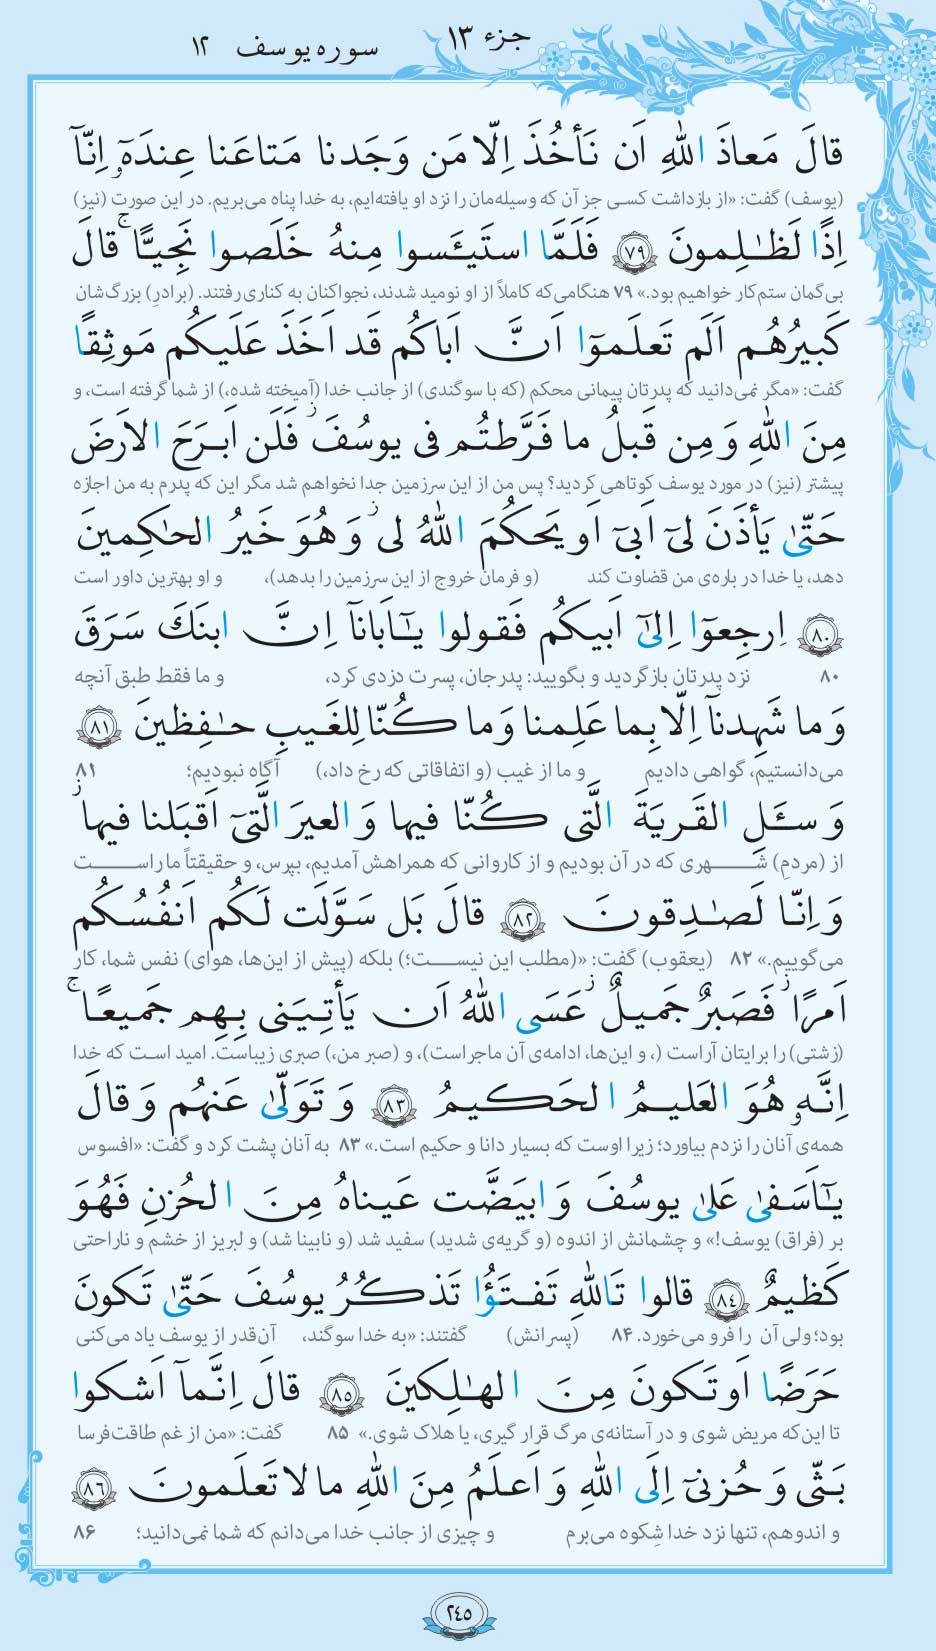 سوره یوسف ۱۲
جزء ۱۳
قالَ مَعاذَ اللّٰهِ اَن نَأخُذَ اِلّا مَن وَجَدنا مَتاعَنا عِندَهٓۥ اِنّآ
(یوسف) گفت: «از بازداشت کسی جز آن که وسیله‌مان را نزد او یافته‌ایم، به خدا پناه می‌بریم. در این صورت (نیز)
اِذًا لَظٰلِمونَ ﴿٧٩﴾ فَلَمَّا استَيئَسوا مِنهُ خَلَصوا نَجِيًّا ۚ قالَ
بی‌گمان ستم‌کار خواهیم بود.» ۷۹ هنگامی‌که کاملاً از او نومید شدند، نجواکنان به کناری رفتند. (برادرِ) بزرگ‌شان
كَبيرُهُم اَلَم تَعلَموٓا اَنَّ اَباكُم قَد اَخَذَ عَلَيكُم مَوثِقًا
گفت: «مگر نمی‌دانید که پدرتان پیمانی محکم (که با سوگندی) از جانب خدا (آمیخته شده،) از شما گرفته است، و
مِنَ اللّٰهِ وَ مِن قَبلُ ما فَرَّطتُم فى يوسُفَ ۖ فَلَن اَبرَحَ الاَرضَ
پیشتر (نیز) در مورد یوسف کوتاهی کردید؟ پس من از این سرزمین جدا نخواهم شد مگر این که پدرم به من اجازه
حَتّىٰ يَأذَنَ لىٓ اَبىٓ اَو يَحكُمَ اللّٰهُ لى ۖ وَ هُوَ خَيرُ الحٰكِمينَ
دهد، یا خدا در باره‌ی من قضاوت کند (و فرمان خروج از این سرزمین را بدهد)، و او بهترین داور است
﴿٨٠﴾ اِرجِعوٓا اِلىٰٓ اَبيكُم فَقولوا يٰٓاَبانآ اِنَّ ابنَكَ سَرَقَ
۸۰ نزد پدرتان بازگردید و بگویید: پدرجان، پسرت دزدی کرد، و ما فقط طبق آنچه
وَ ما شَهِدنآ اِلّا بِما عَلِمنا وَ ما كُنّا لِلغَيبِ حٰفِظينَ ﴿٨١﴾
می‌دانستیم، گواهی دادیم و ما از غیب (و اتفاقاتی که رخ داد،) آگاه نبودیم؛ ۸۱
وَ سـَٔلِ القَريَةَ الَّتى كُنّا فيها وَ العيرَ الَّتىٓ اَقبَلنا فيها ۖ
از (مردمِ) شهری که در آن بودیم و از کاروانی که همراهش آمدیم، بپرس، و حقیقتاً ما راست
وَ اِنّا لَصٰدِقونَ ﴿٨٢﴾ قالَ بَل سَوَّلَت لَكُم اَنفُسُكُم
می‌گوییم.» ۸۲ (یعقوب) گفت: «(مطلب این نیست؛) بلکه (پیش از این‌ها، هوای) نفس شما، کار
اَمرًا ۖ فَصَبرٌ جَميلٌ ۖ عَسَى اللّٰهُ اَن يَأتِيَنى بِهِم جَميعًا ۚ
(زشتی) را برایتان آراست (، و این‌ها، ادامه‌ی آن ماجراست)، و (صبر من،) صبری زیباست. امید است که خدا
اِنَّهۥ هُوَ العَليمُ الحَكيمُ ﴿٨٣﴾ وَ تَوَلّىٰ عَنهُم وَ قالَ
همه‌ی آنان را نزدم بیاورد؛ زیرا اوست که بسیار دانا و حکیم است.» ۸۳ به آنان پشت کرد و گفت: «افسوس
يٰٓاَسَفىٰ عَلىٰ يوسُفَ وَ ابيَضَّت عَيناهُ مِنَ الحُزنِ فَهُوَ
بر (فراق) یوسف!» و چشمانش از اندوه (و گریه‌ی شدید) سفید شد (و نابینا شد) و لبریز از خشم و ناراحتی
كَظيمٌ ﴿٨٤﴾ قالوا تَاللّٰهِ تَفتَؤُا تَذكُرُ يوسُفَ حَتّىٰ تَكونَ
بود؛ ولی آن را فرو می‌خورد. ۸۴ (پسرانش) گفتند: «به خدا سوگند، آن‌قدر از یوسف یاد می‌کنی
حَرَضًا اَو تَكونَ مِنَ الهٰلِكينَ ﴿٨٥﴾ قالَ اِنَّمآ اَشكوا
تا این‌که مریض شوی و در آستانه‌ی مرگ قرار گیری، یا هلاک شوی.» ۸۵ گفت: «من از غم طاقت‌فرسا
بَثّى وَ حُزنىٓ اِلَى اللّٰهِ وَ اَعلَمُ مِنَ اللّٰهِ ما لا تَعلَمونَ ﴿٨٦﴾
و اندوهم، تنها نزد خدا شِکوه می‌برم و چیزی از جانب خدا می‌دانم که شما نمی‌دانید؛ ۸۶
۲٤۵